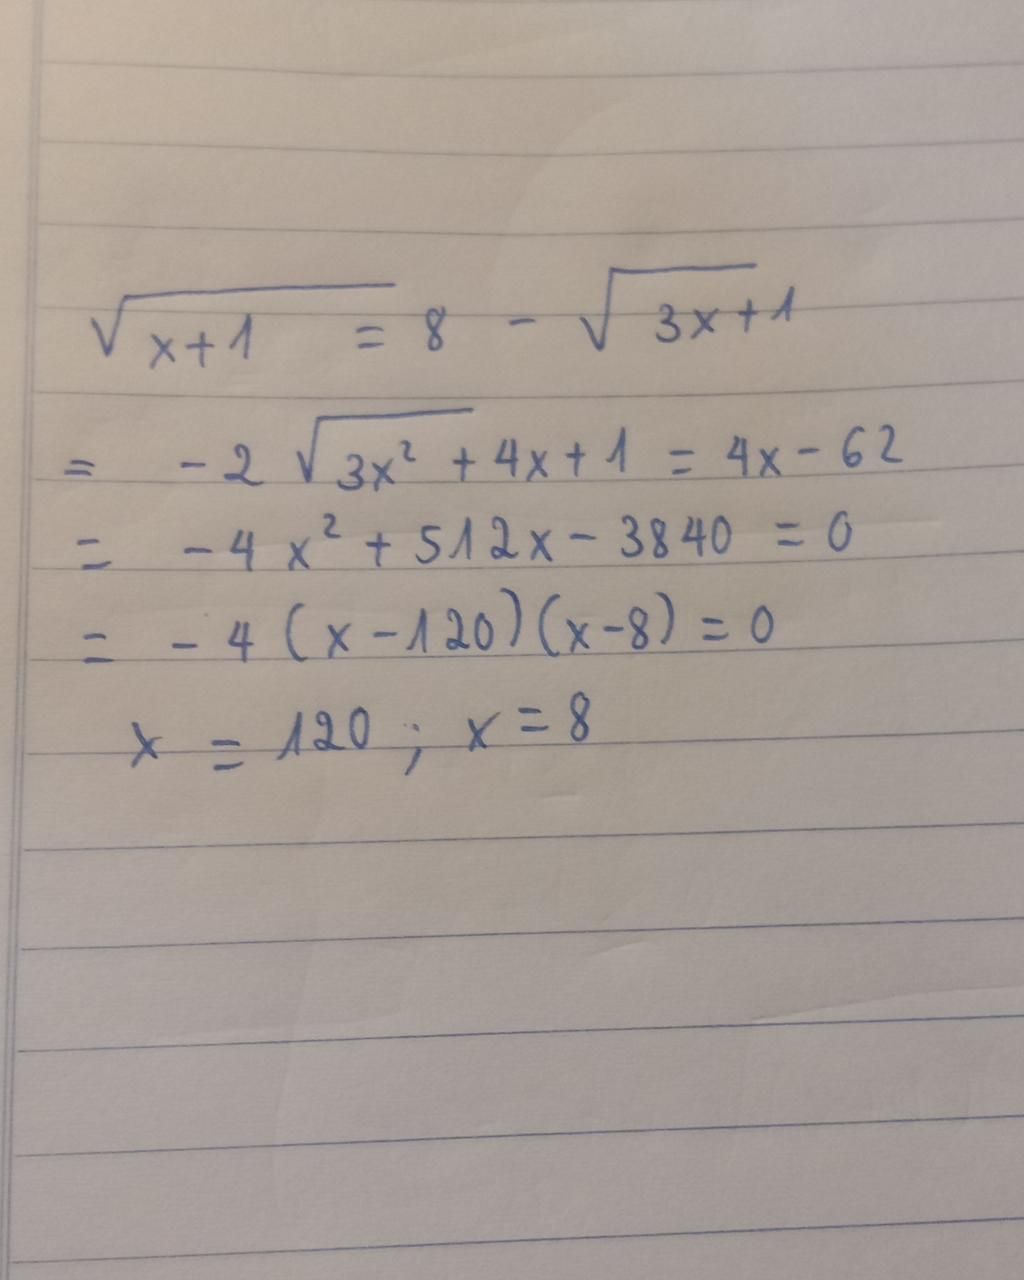 √x+1 = 8 - √3x+1
= -2 √3x² + 4x + 1 = 4x - 62
= -4x² + 512x - 3840 = 0
= -4 (x - 120)(x - 8) = 0
x = 120 ; x = 8